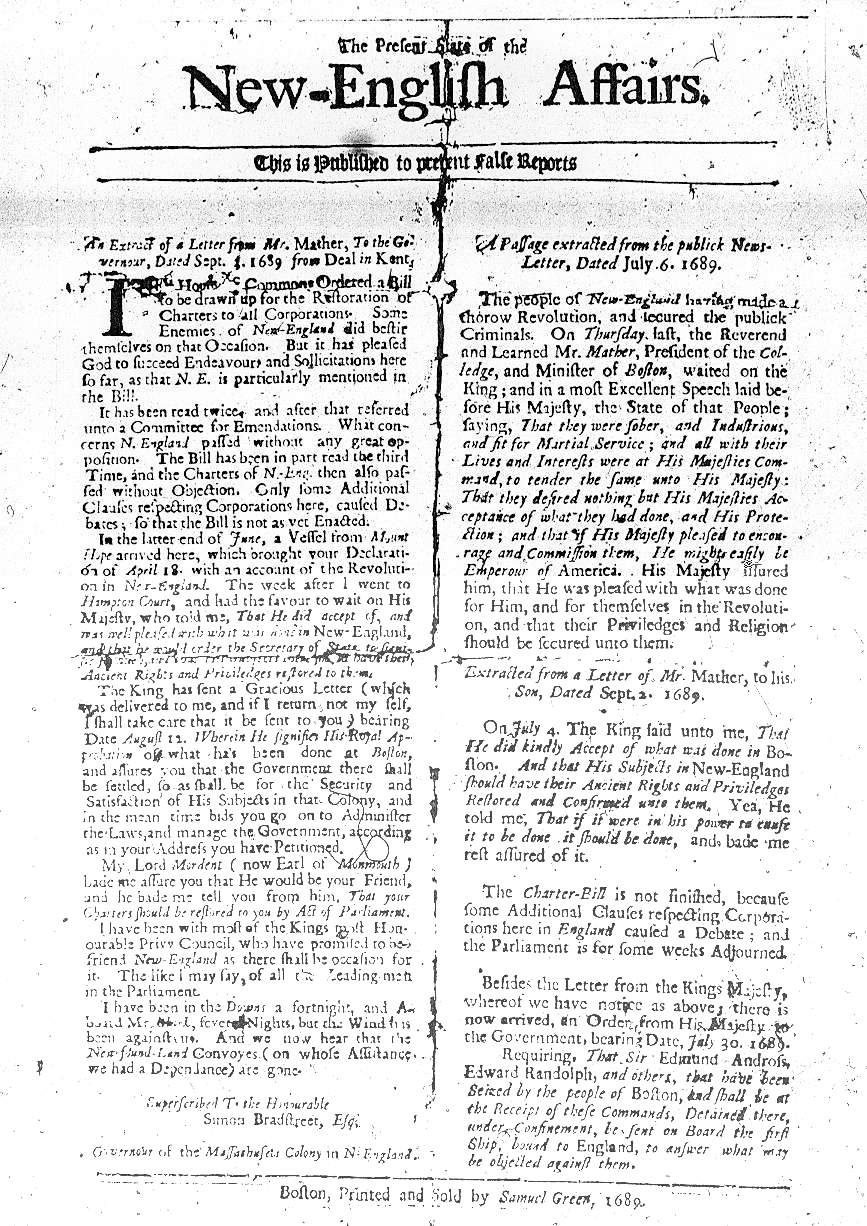 The Preſent State of the
New-Engliſh Affairs.
This is Publiſhed to prevent Falſe Reports
An Extract of a Letter from Mr. Mather, To the Go-
vernour, Dated Sept. 3. 1689 from Deal in Kent,
THE Houſe Commons Ordered a Bill
to be drawn up for the Reſtoration of
Charters to all Corporations. Some
Enemies of New-England did beſtir
themſelves on that Occaſion. But it has pleaſed
God to ſucceed Endeavours and Sollicitations here
ſo far, as that N. E. is particularly mentioned in
the Bill.
It has been read twice, and after that referred
unto a Committee for Emendations. What con-
cerns N. England paſſed without any great op-
poſition. The Bill has been in part read the third
Time, and the Charters of N-Eng. then alſo paſ-
ſed without Objection. Only ſome Additional
Clauſes reſpecting Corporations here, cauſed De-
bates; ſo that the Bill is not as yet Enacted.
In the latter end of June, a Veſſel from Mount
Hope arrived here, which brought your Declarati-
on of April 18. with an account of the Revoluti-
on in New-England. The week after I went to
Hampton Court, and had the favour to wait on His
Majeſty, who told me, That He did accept of, and
was well pleaſed with what was done in New-England,
and that he would order the Secretary of State to ſigni-
fie ſo have their
Ancient Rights and Priviledges reſtored to them.
The King has ſent a Gracious Letter (which
was delivered to me, and if I return not my ſelf,
I ſhall take care that it be ſent to you) bearing
Date Auguſt 12. Wherein He ſignifies His Royal Ap-
probation of what has been done at Boſton,
and aſſures you that the Government there ſhall
be ſettled, ſo as ſhall be for the Security and
Satisfaction of His Subjects in that Colony, and
in the mean time bids you go on to Adminiſter
the Laws, and manage the Government, according
as in your Addreſs you have Petitioned.
My Lord Mordent (now Earl of Monmouth)
bade me aſſure you that He would be your Friend,
and he bade me tell you from him, That your
Charters ſhould be reſtored to you by Act of Parliament.
I have been with moſt of the Kings moſt Hon-
ourable Privy Council, who have promiſed to be-
friend New-England as there ſhall be occaſion for
it. The like I may ſay, of all the Leading-men
in the Parliament.
I have been in the Downs a fortnight, and A-
board Mr. ſeveral Nights, but the Wind has
been againſt us. And we now hear that the
New-found-Land Convoyes (on whoſe Aſſiſtance
we had a Dependance) are gone.
Superſcribed To the Honourable
Simon Bradſtreet, Eſq;
Governour of the Maſſathuſets Colony in N-England.
A Paſſage extracted from the publick News-
Letter, Dated July. 6. 1689.
The people of New-England having made a
thorow Revolution, and ſecured the publick
Criminals. On Thurſday laſt, the Reverend
and Learned Mr. Mather, Preſident of the Col-
ledge, and Miniſter of Boſton, waited on the
King; and in a moſt Excellent Speech laid be-
fore His Majeſty, the State of that People;
ſaying, That they were ſober, and Induſtrious,
and fit for Martial Service; and all with their
Lives and Intereſts were at His Majeſties Com-
mand, to tender the ſame unto His Majeſty:
That they deſired nothing but His Majeſties Ac-
ceptance of what they had done, and His Prote-
ction; and that if His Majeſty pleaſed to encou-
rage and Commiſſion them, He might eaſily be
Emperour of America. His Majeſty aſſured
him, that He was pleaſed with what was done
for Him, and for themſelves in the Revoluti-
on, and that their Priviledges and Religion
ſhould be ſecured unto them.
Extracted from a Letter of Mr. Mather, to his
Son, Dated Sept. 2. 1689.
On July 4. The King ſaid unto me, That
He did kindly Accept of what was done in Bo-
ſton. And that His Subjects in New-England
ſhould have their Ancient Rights and Priviledges
Reſtored and Confirmed unto them. Yea, He
told me, That if it were in his power to cauſe
it to be done it ſhould be done, and bade me
reſt aſſured of it.
The Charter-Bill is not finiſhed, becauſe
ſome Additional Clauſes reſpecting Corpora-
tions here in England cauſed a Debate; and
the Parliament is for ſome weeks Adjourned.
Beſides the Letter from the Kings Majeſty,
whereof we have notice as above, there is
now arrived, an Order from His Majeſty to
the Government, bearing Date, July 30. 1689.
Requiring, That Sir Edmund Androſs,
Edward Randolph, and others, that have been
Seized by the people of Boſton, and ſhall be at
the Receipt of theſe Commands, Detained there,
under Confinement, be ſent on Board the firſt
Ship, bound to England, to anſwer what may
be objected againſt them.
Boſton, Printed and Sold by Samuel Green, 1689.